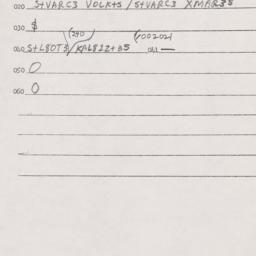 020 S+VARC3 VOLK+S / S+VARC3 XMAR35
030 $
(240 (002021
040 S+L80T3/KAL812+A5 041 —
050 0
060 0